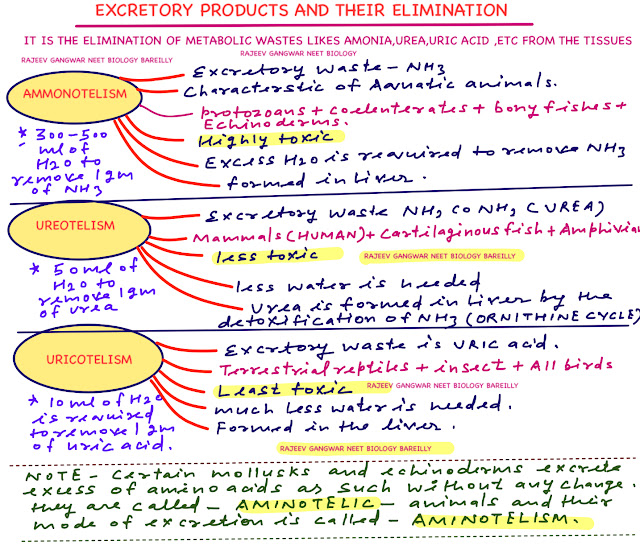 EXCRETORY PRODUCTS AND THEIR ELIMINATION
IT IS THE ELIMINATION OF METABOLIC WASTES LIKES AMONIA,UREA,URIC ACID ,ETC FROM THE TISSUES
RAJEEV GANGWAR NEET BIOLOGY
RAJEEV GANGWAR NEET BIOLOGY BAREILLY
AMMONOTELISM
Excretory waste - NH3
Characterstic of Aquatic animals.
protozoans + coelenterates + bony fishes +
Echinoderms.
Highly toxic
Excess H2O is required to remove NH3
formed in liver.
* 300-500
ml of
H2O to
remove 1gm
of NH3
UREOTELISM
Excretory waste NH2 CO NH2 (UREA)
Mammals (HUMAN) + Cartilaginous fish + Amphivian
less toxic
RAJEEV GANGWAR NEET BIOLOGY BAREILLY
less water is needed
Urea is formed in liver by the
detoxification of NH3 (ORNITHINE CYCLE)
* 50 ml of
H2O to
remove 1gm
of urea
URICOTELISM
Excrtory waste is URIC acid.
Terrestrial reptiles + insect + All birds
Least toxic
RAJEEV GANGWAR NEET BIOLOGY BAREILLY
much less water is needed.
Formed in the liver.
* 10 ml of H2O
is required
to remove 1gm
of uric acid.
RAJEEV GANGWAR NEET BIOLOGY BAREILLY
NOTE - Certain mollusks and echinoderms excrete
excess of amino acids as such without any change.
they are called - AMINOTELIC - animals and their
mode of excretion is called - AMINOTELISM.